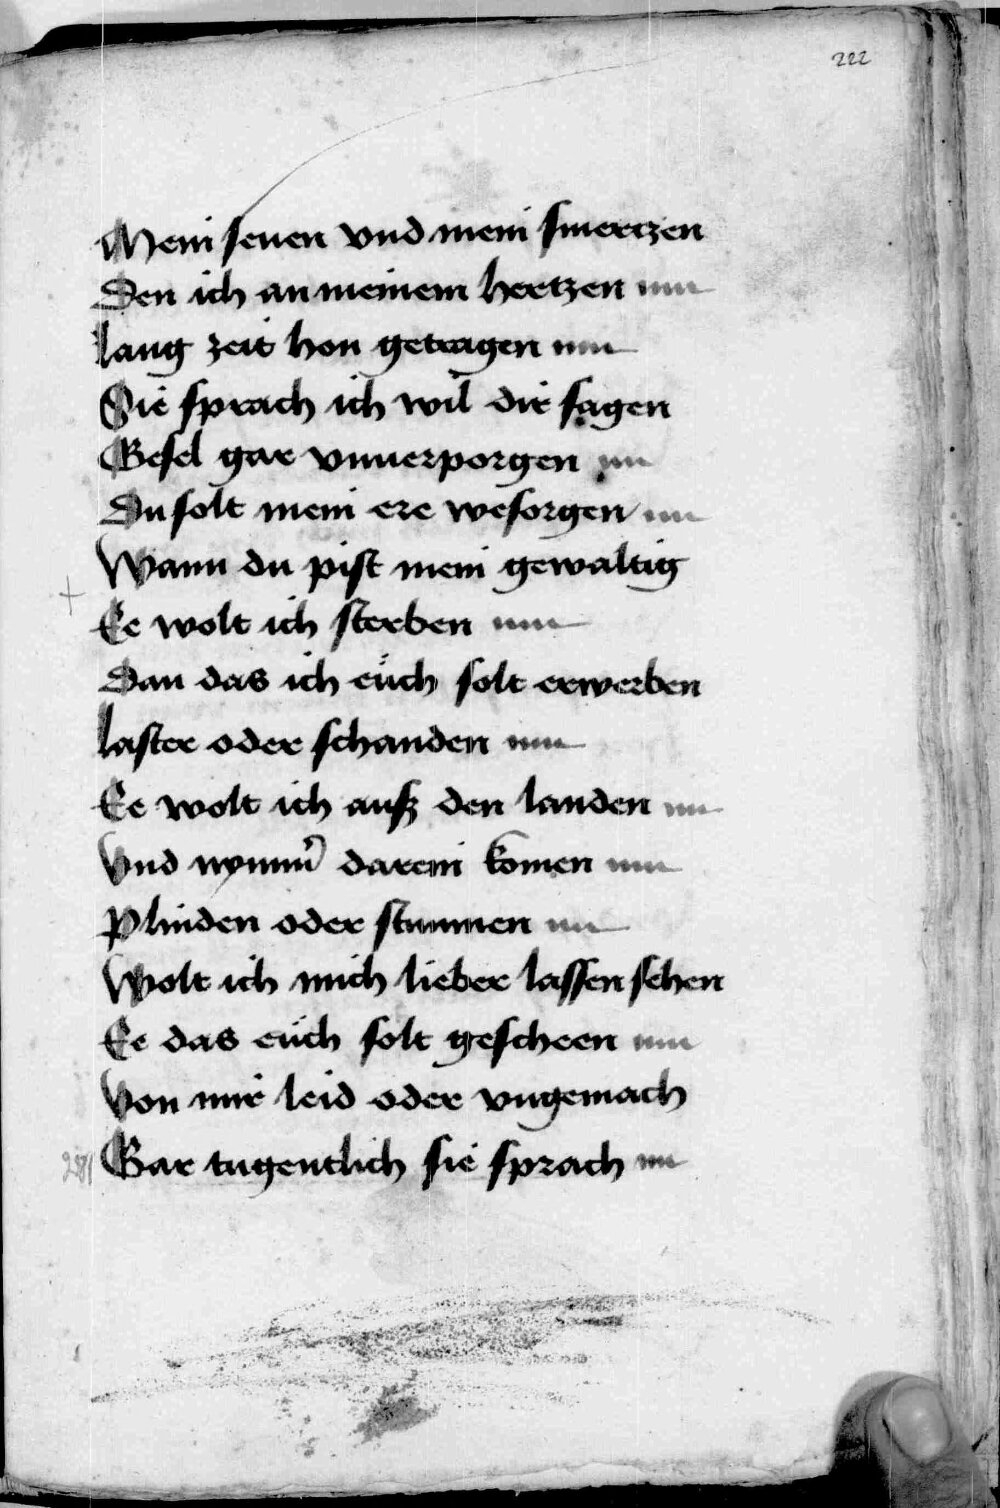 222
Mein senen vnd mein smertzen
Den ich an meinem hertzen
lang zeit hon getragen
Sie sprach ich wil dir sagen
Gesel gar vnuerporgen
Du solt mein ere wesorgen
Wann du pist mein gewaltig
Ee wolt ich sterben
Dan das ich eüch solt erwerben
laster oder schanden
Ee wolt ich auß den landen
Vnd nymmer darein komen
Plinden oder stummen
Wolt ich mich lieber lassen sehen
Ee das eüch solt gescheen
Von mir leid oder vngemach
Gar tugentlich sie sprach